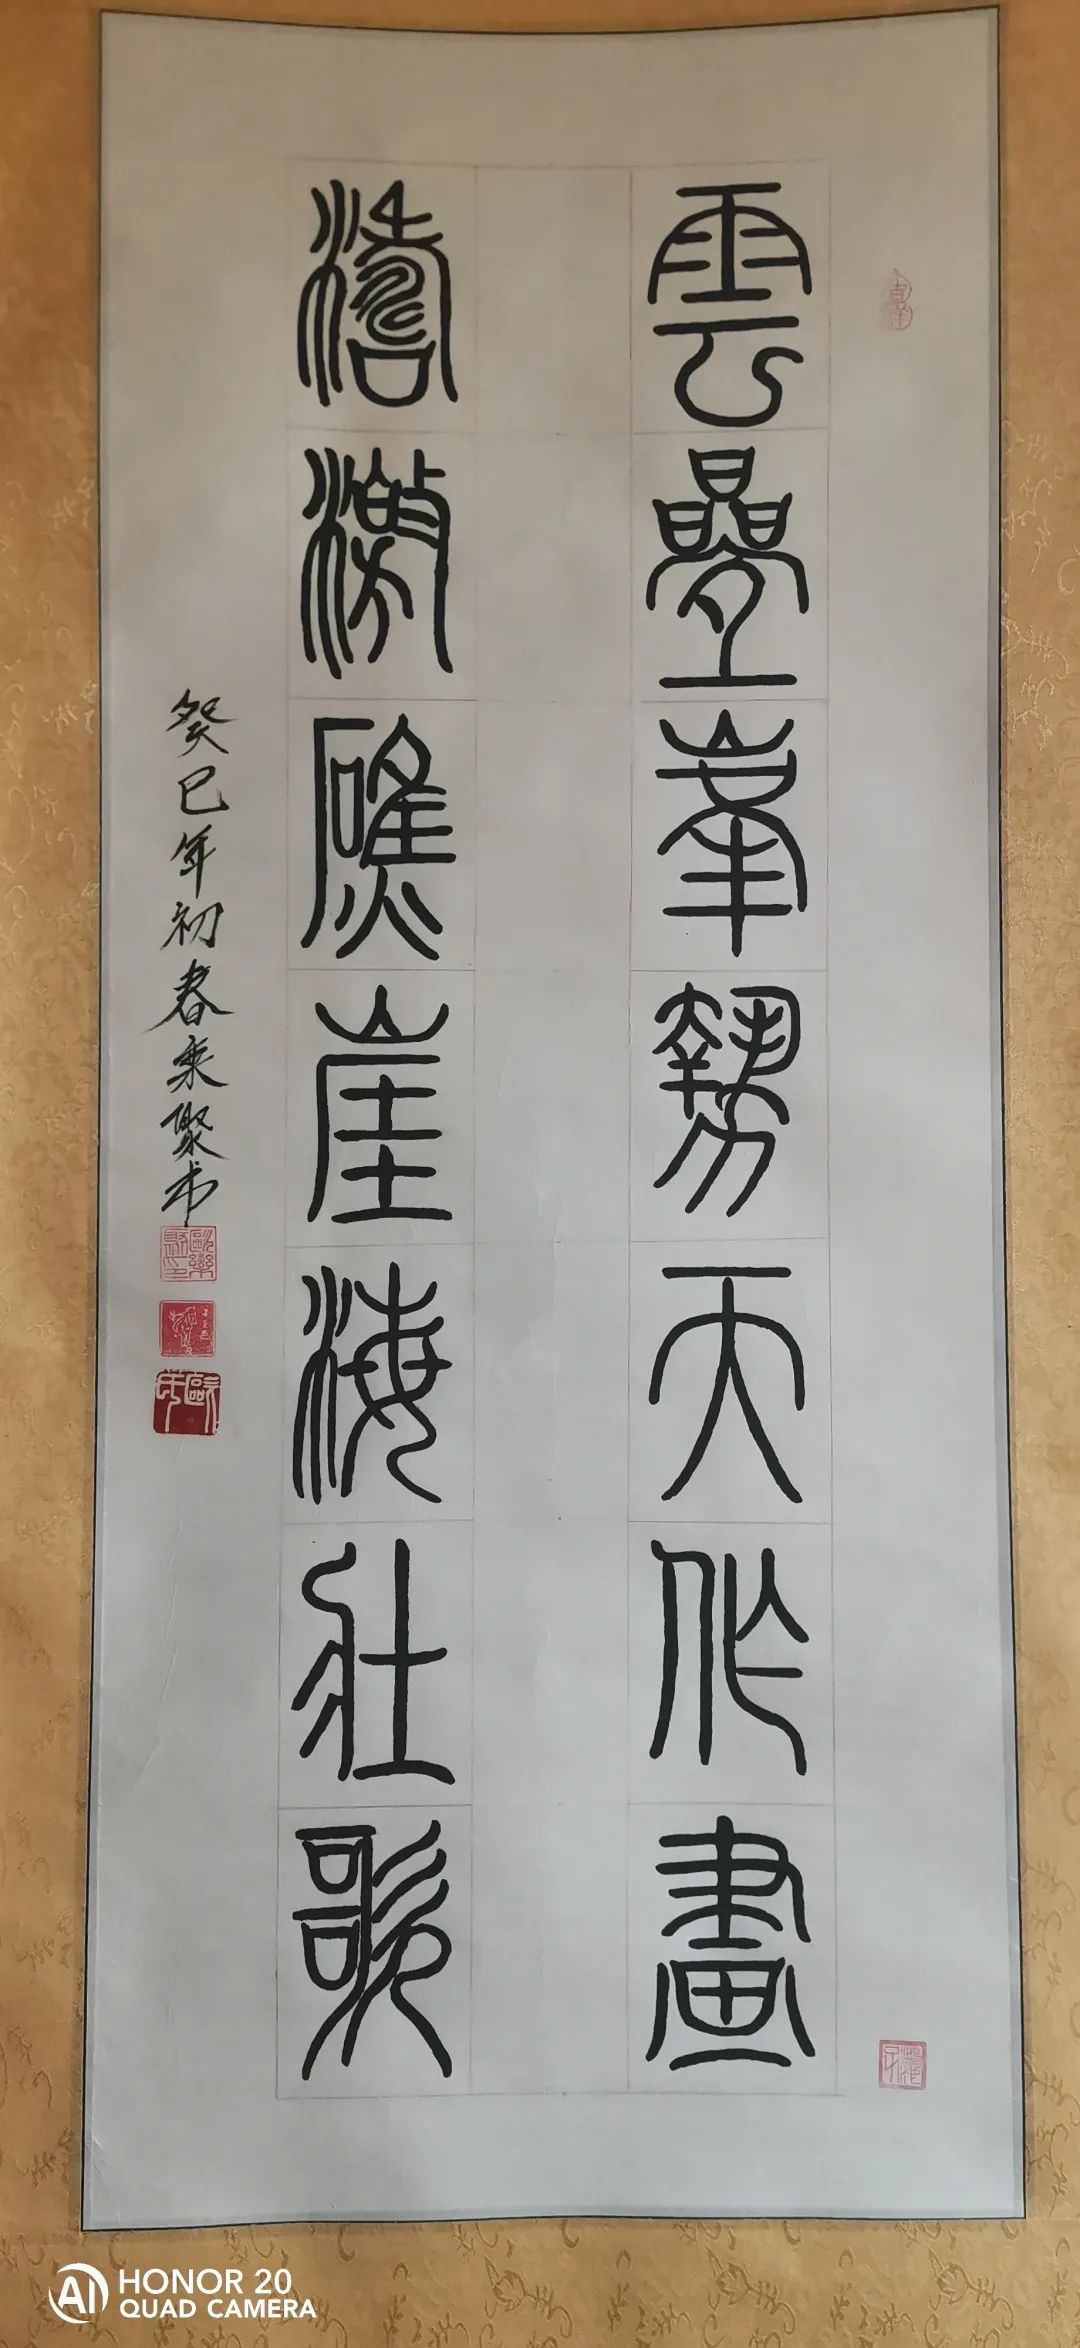 雲壘峯勢天作畫
濤激礁崖海壯歌
癸巳年初春乘聚书
HONOR 20
QUAD CAMERA